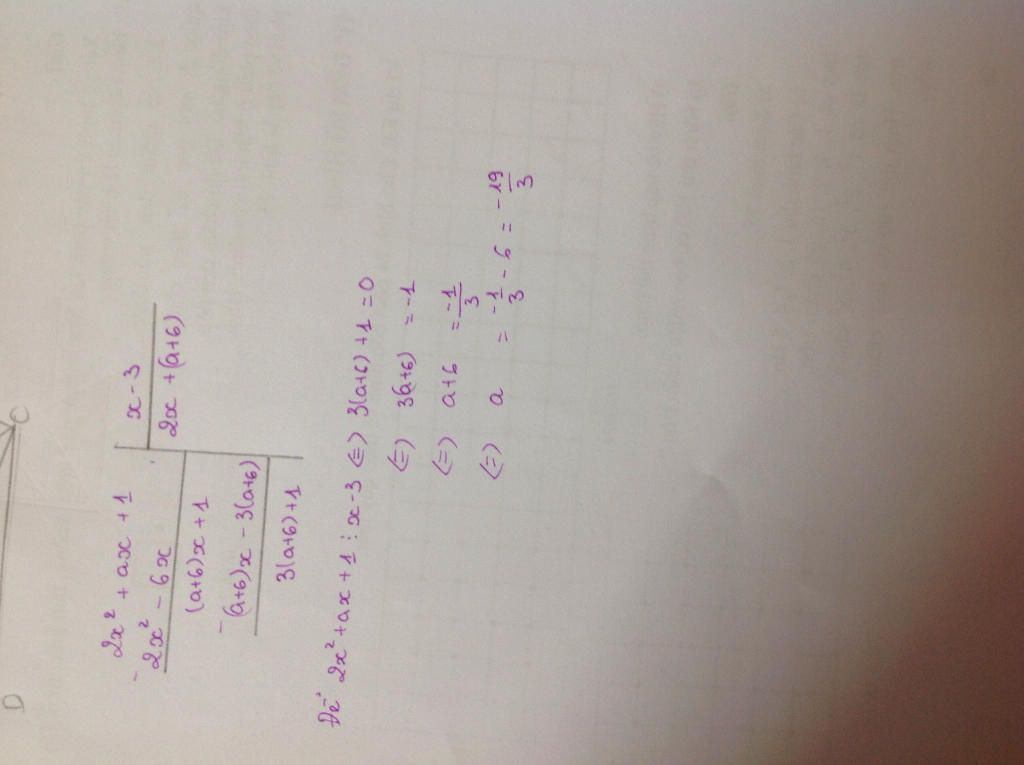 D
C
2x² + ax + 1
x - 3
- 2x² - 6x
2x + (a+6)
(a+6)x + 1
- (a+6)x - 3(a+6)
3(a+6)+1
Để 2x² + ax + 1 ⋮ x - 3 (=) 3(a+6) + 1 = 0
(=) 3(a+6) = -1
(=) a+6 = -1/3
(=) a = -1/3 - 6 = -19/3